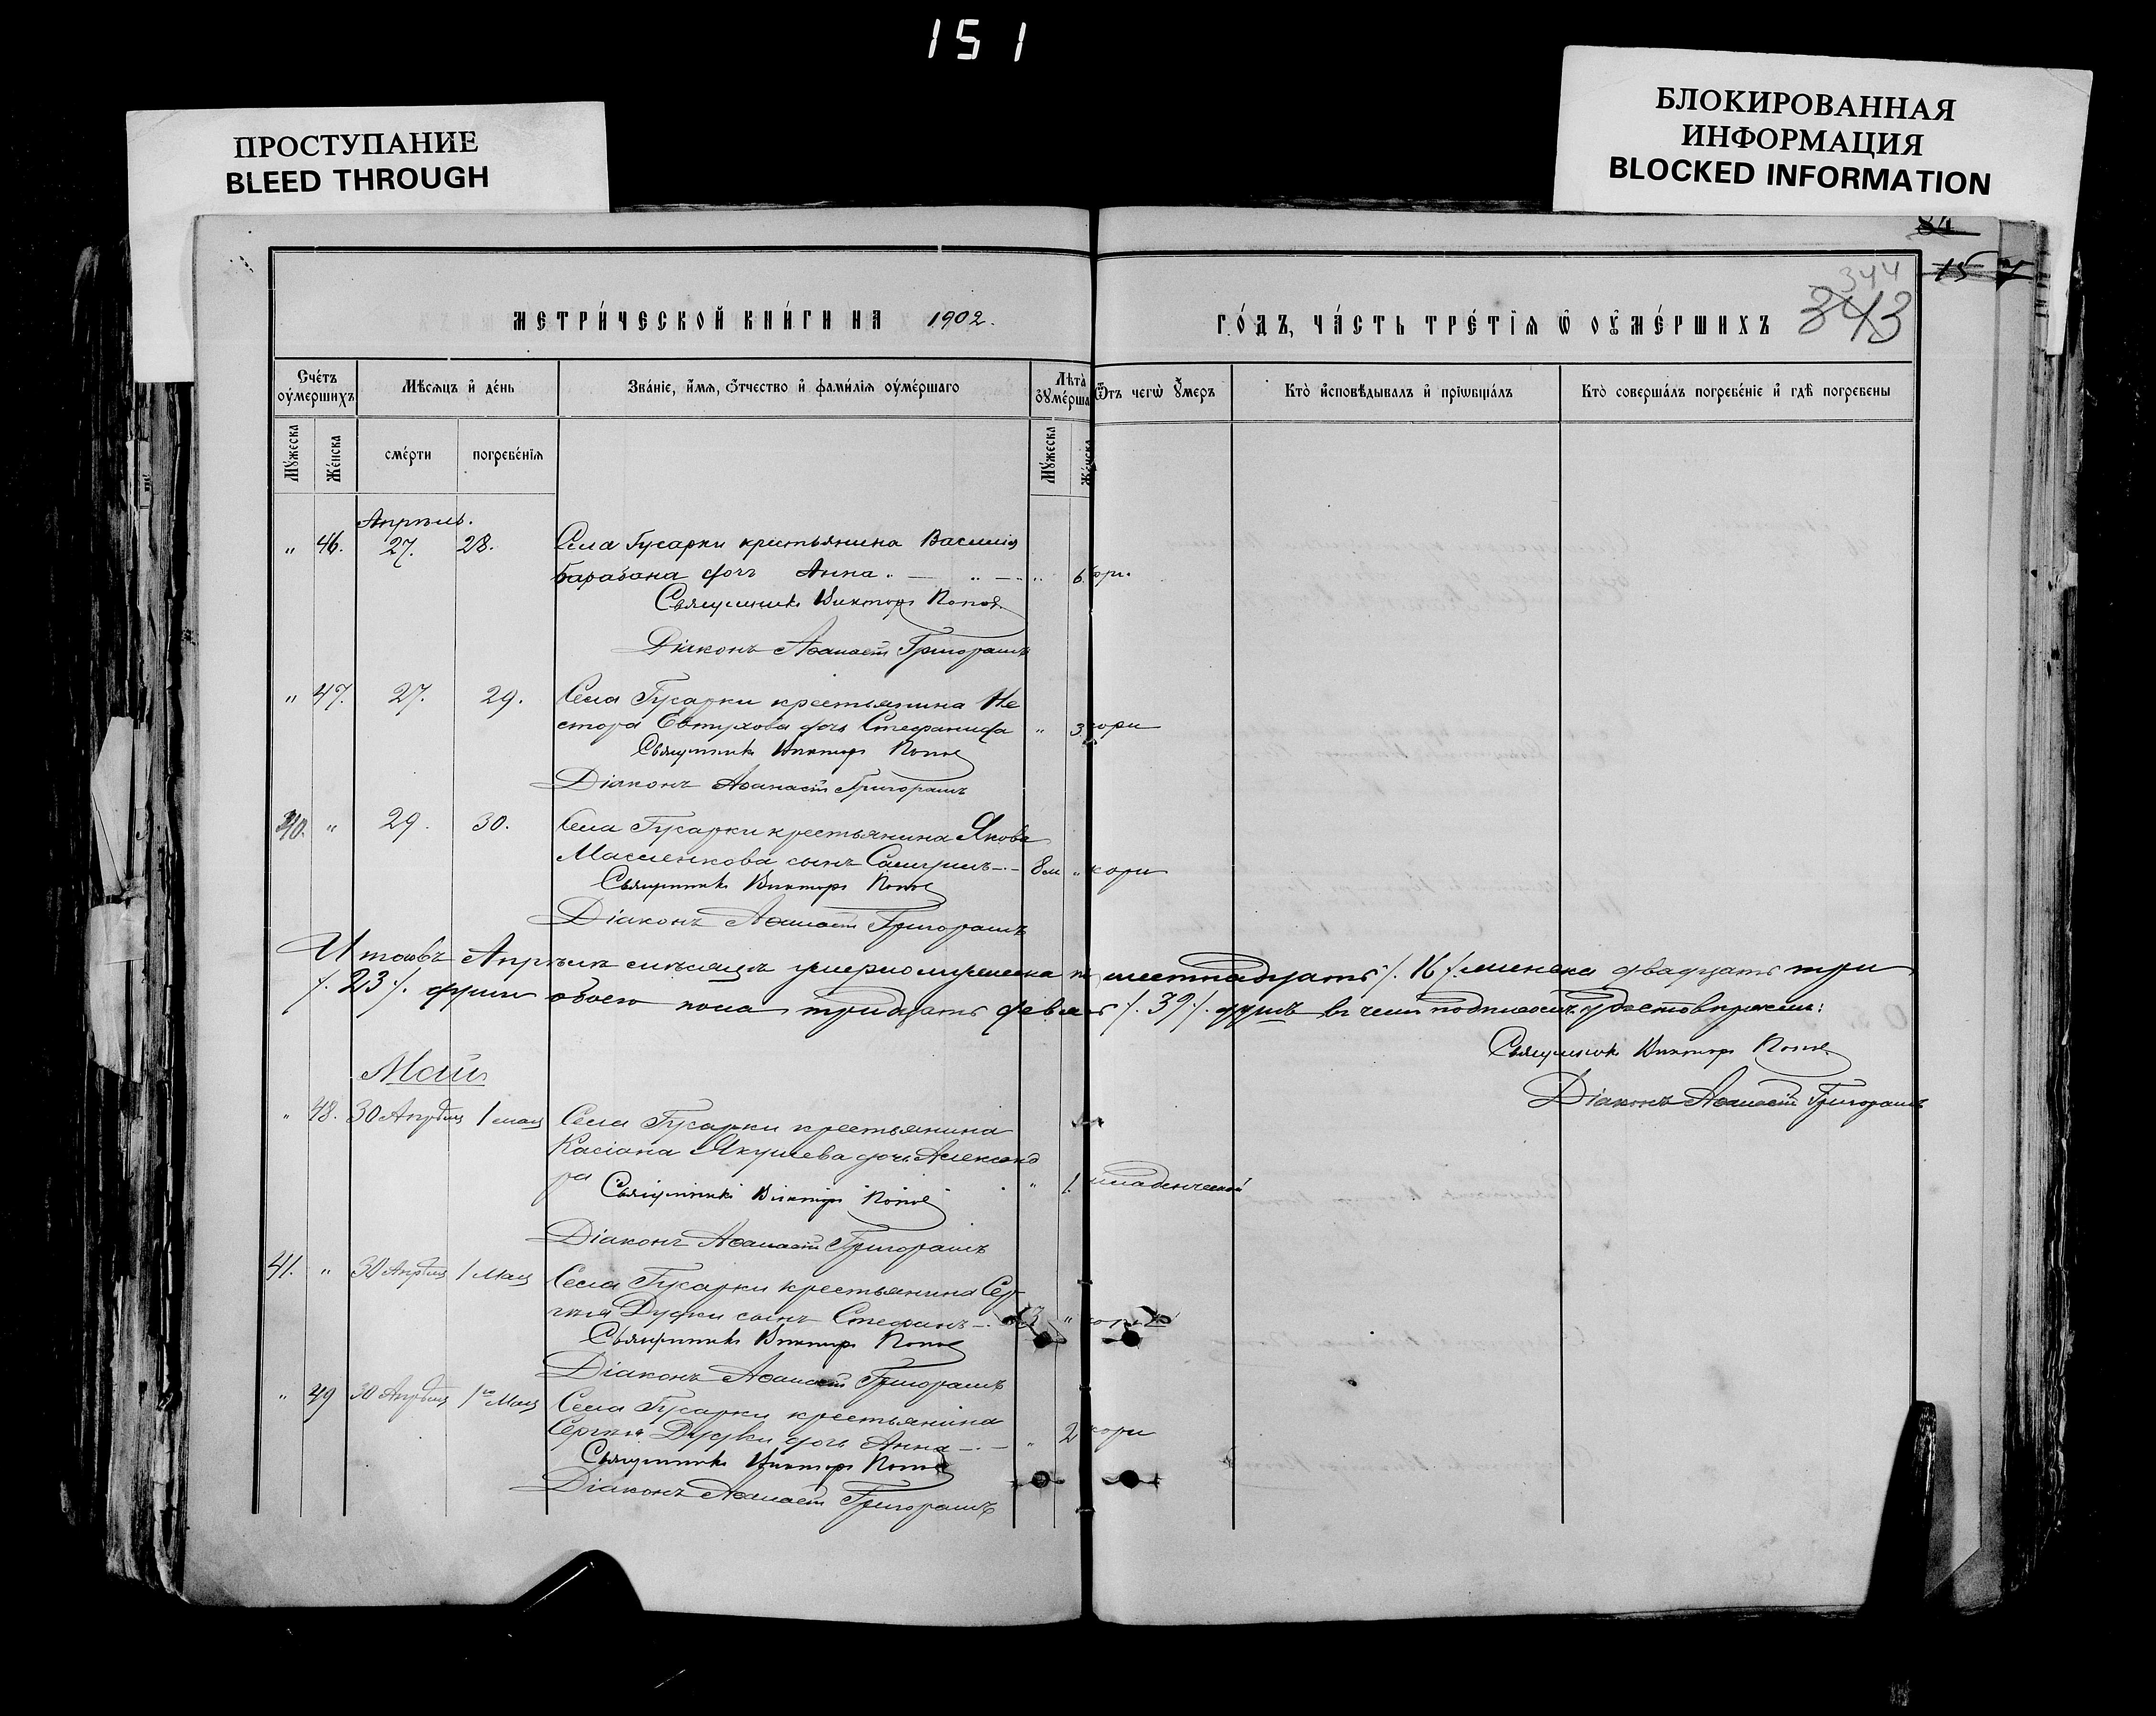 151
ПРОСТУПАНИЕ
BLEED THROUGH
БЛОКИРОВАННАЯ
ИНФОРМАЦИЯ
BLOCKED INFORMATION
84
15
344
343
МЕТРИ́ЧЕСКОЙ КНИ́ГИ НА 1902.
ГО́ДЪ, ЧА́СТЬ ТРЕ́ТЇѦ Ѡ҆ ОУ҆МЕ́РШИХЪ
Сче́тъ оу҆ме́ршихъ
Мѣ́сѧцъ и҆ де́нь
Зва́нїе, и҆́мѧ, ѻ҆́тчество и҆ фами́лїѧ оу҆ме́ршаго
Лѣ́та оу҆ме́рша
Ѿ чегѡ̀ оу҆́меръ
Кто̀ и҆сповѣ́дывалъ и҆ прїѡбща́лъ
Кто̀ соверша́лъ погребе́нїе и҆ гдѣ̀ погребены
Му́жеска
Же́нска
сме́рти
погребе́нїѧ
Му́жеска
Же́нска
Апрѣль.
" 46. 27. 28. Села Гусарки крестьянина Василія
Барабана дочь Анна. " 6. кори.
Священникъ Викторъ Попов
Діаконъ Аѳанасій Григорашъ
" 47. 27. 29. Села Гусарки крестьянина Не
стора Евтухова дочь Стефанида " 3. кори
Священникъ Викторъ Попов
Діаконъ Аѳанасій Григорашъ
40. " 29. 30. Села Гусарки крестьянина Якова
Масленкова сынъ 8м " кори
Священникъ Викторъ Попов
Діаконъ Аѳанасій Григорашъ
Итого въ Апрѣлѣ мѣсяцѣ умерло мужеска п шестнадцать /. 16 /. женска двадцать три
/. 23 /. души обоего пола тридцать девять /. 39 /. душъ въ чемъ подписомъ удостовѣряемъ:
Священникъ Викторъ Попов
Діаконъ Аѳанасій Григорашъ
Май
" 48. 30 Апрѣля 1 мая Села Гусарки крестьянина
Касіана Якушева дочь Александ
ра " 1. младенческой
Священникъ Викторъ Попов
Діаконъ Аѳанасій Григорашъ
41. " 30 Апрѣля 1 Мая Села Гусарки крестьянина Сер-
гѣя Дудки сынъ Стефанъ 3 " кори
Священникъ Викторъ Попов
Діаконъ Аѳанасій Григорашъ
" 49 30 Апрѣля 1го Мая Села Гусарки крестьянина
Сергѣя Дудки дочь Анна " 2 кори
Священникъ Викторъ Попов
Діаконъ Аѳанасій Григорашъ